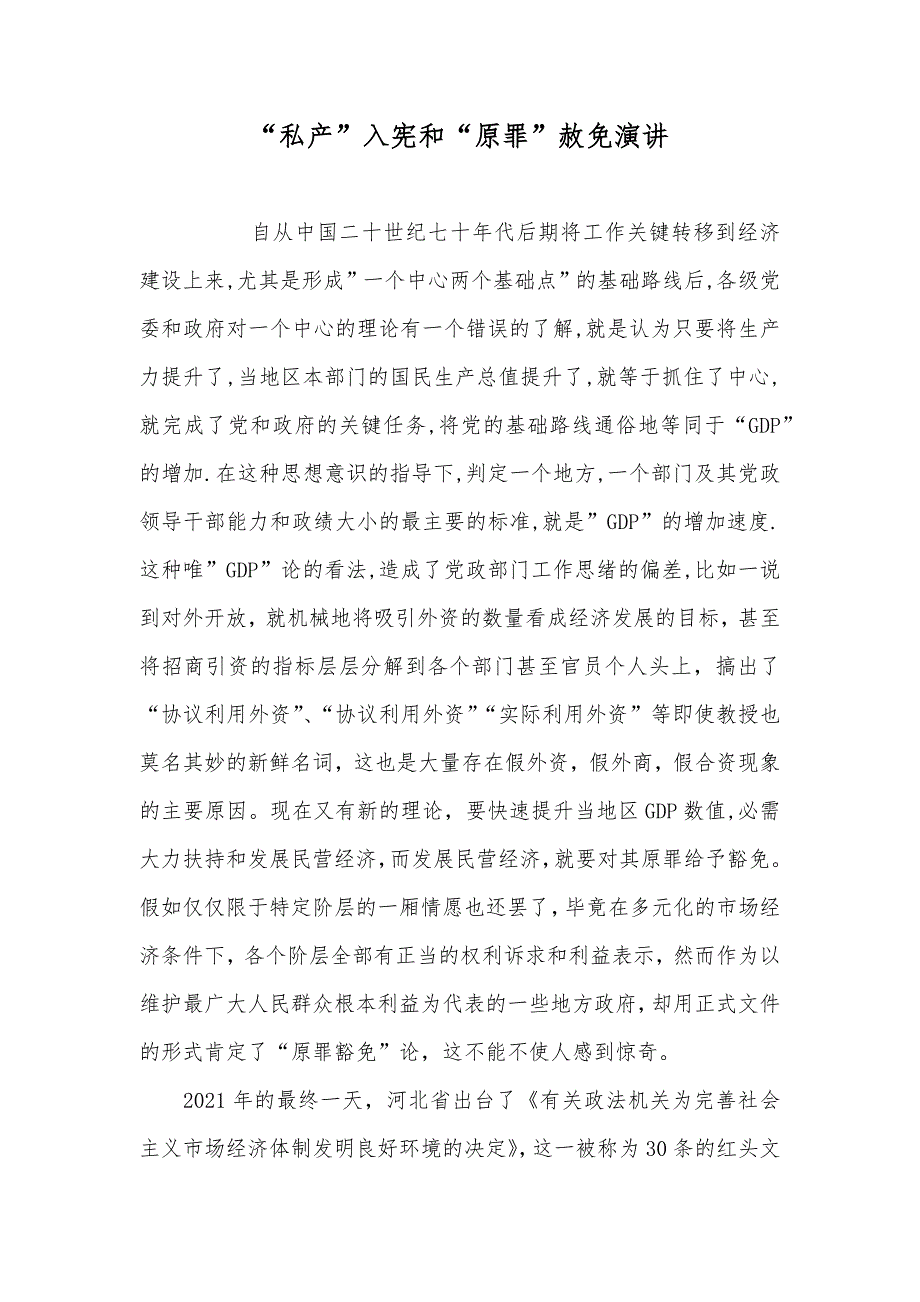 “私产”入宪和“原罪”赦免演讲
自从中国二十世纪七十年代后期将工作关键转移到经济
建设上来,尤其是形成”一个中心两个基础点”的基础路线后,各级党
委和政府对一个中心的理论有一个错误的了解,就是认为只要将生产
力提升了,当地区本部门的国民生产总值提升了,就等于抓住了中心,
就完成了党和政府的关键任务,将党的基础路线通俗地等同于“GDP”
的增加.在这种思想意识的指导下,判定一个地方,一个部门及其党政
领导干部能力和政绩大小的最主要的标准,就是”GDP”的增加速度.
这种唯”GDP”论的看法,造成了党政部门工作思绪的偏差,比如一说
到对外开放，就机械地将吸引外资的数量看成经济发展的目标，甚至
将招商引资的指标层层分解到各个部门甚至官员个人头上，搞出了
“协议利用外资”、“协议利用外资”“实际利用外资”等即使教授也
莫名其妙的新鲜名词，这也是大量存在假外资，假外商，假合资现象
的主要原因。现在又有新的理论，要快速提升当地区 GDP 数值,必需
大力扶持和发展民营经济,而发展民营经济,就要对其原罪给予豁免。
假如仅仅限于特定阶层的一厢情愿也还罢了，毕竟在多元化的市场经
济条件下，各个阶层全部有正当的权利诉求和利益表示，然而作为以
维护最广大人民群众根本利益为代表的一些地方政府，却用正式文件
的形式肯定了“原罪豁免”论，这不能不使人感到惊奇。
2021 年的最终一天，河北省出台了《有关政法机关为完善社会
主义市场经济体制发明良好环境的决定》，这一被称为 30 条的红头文